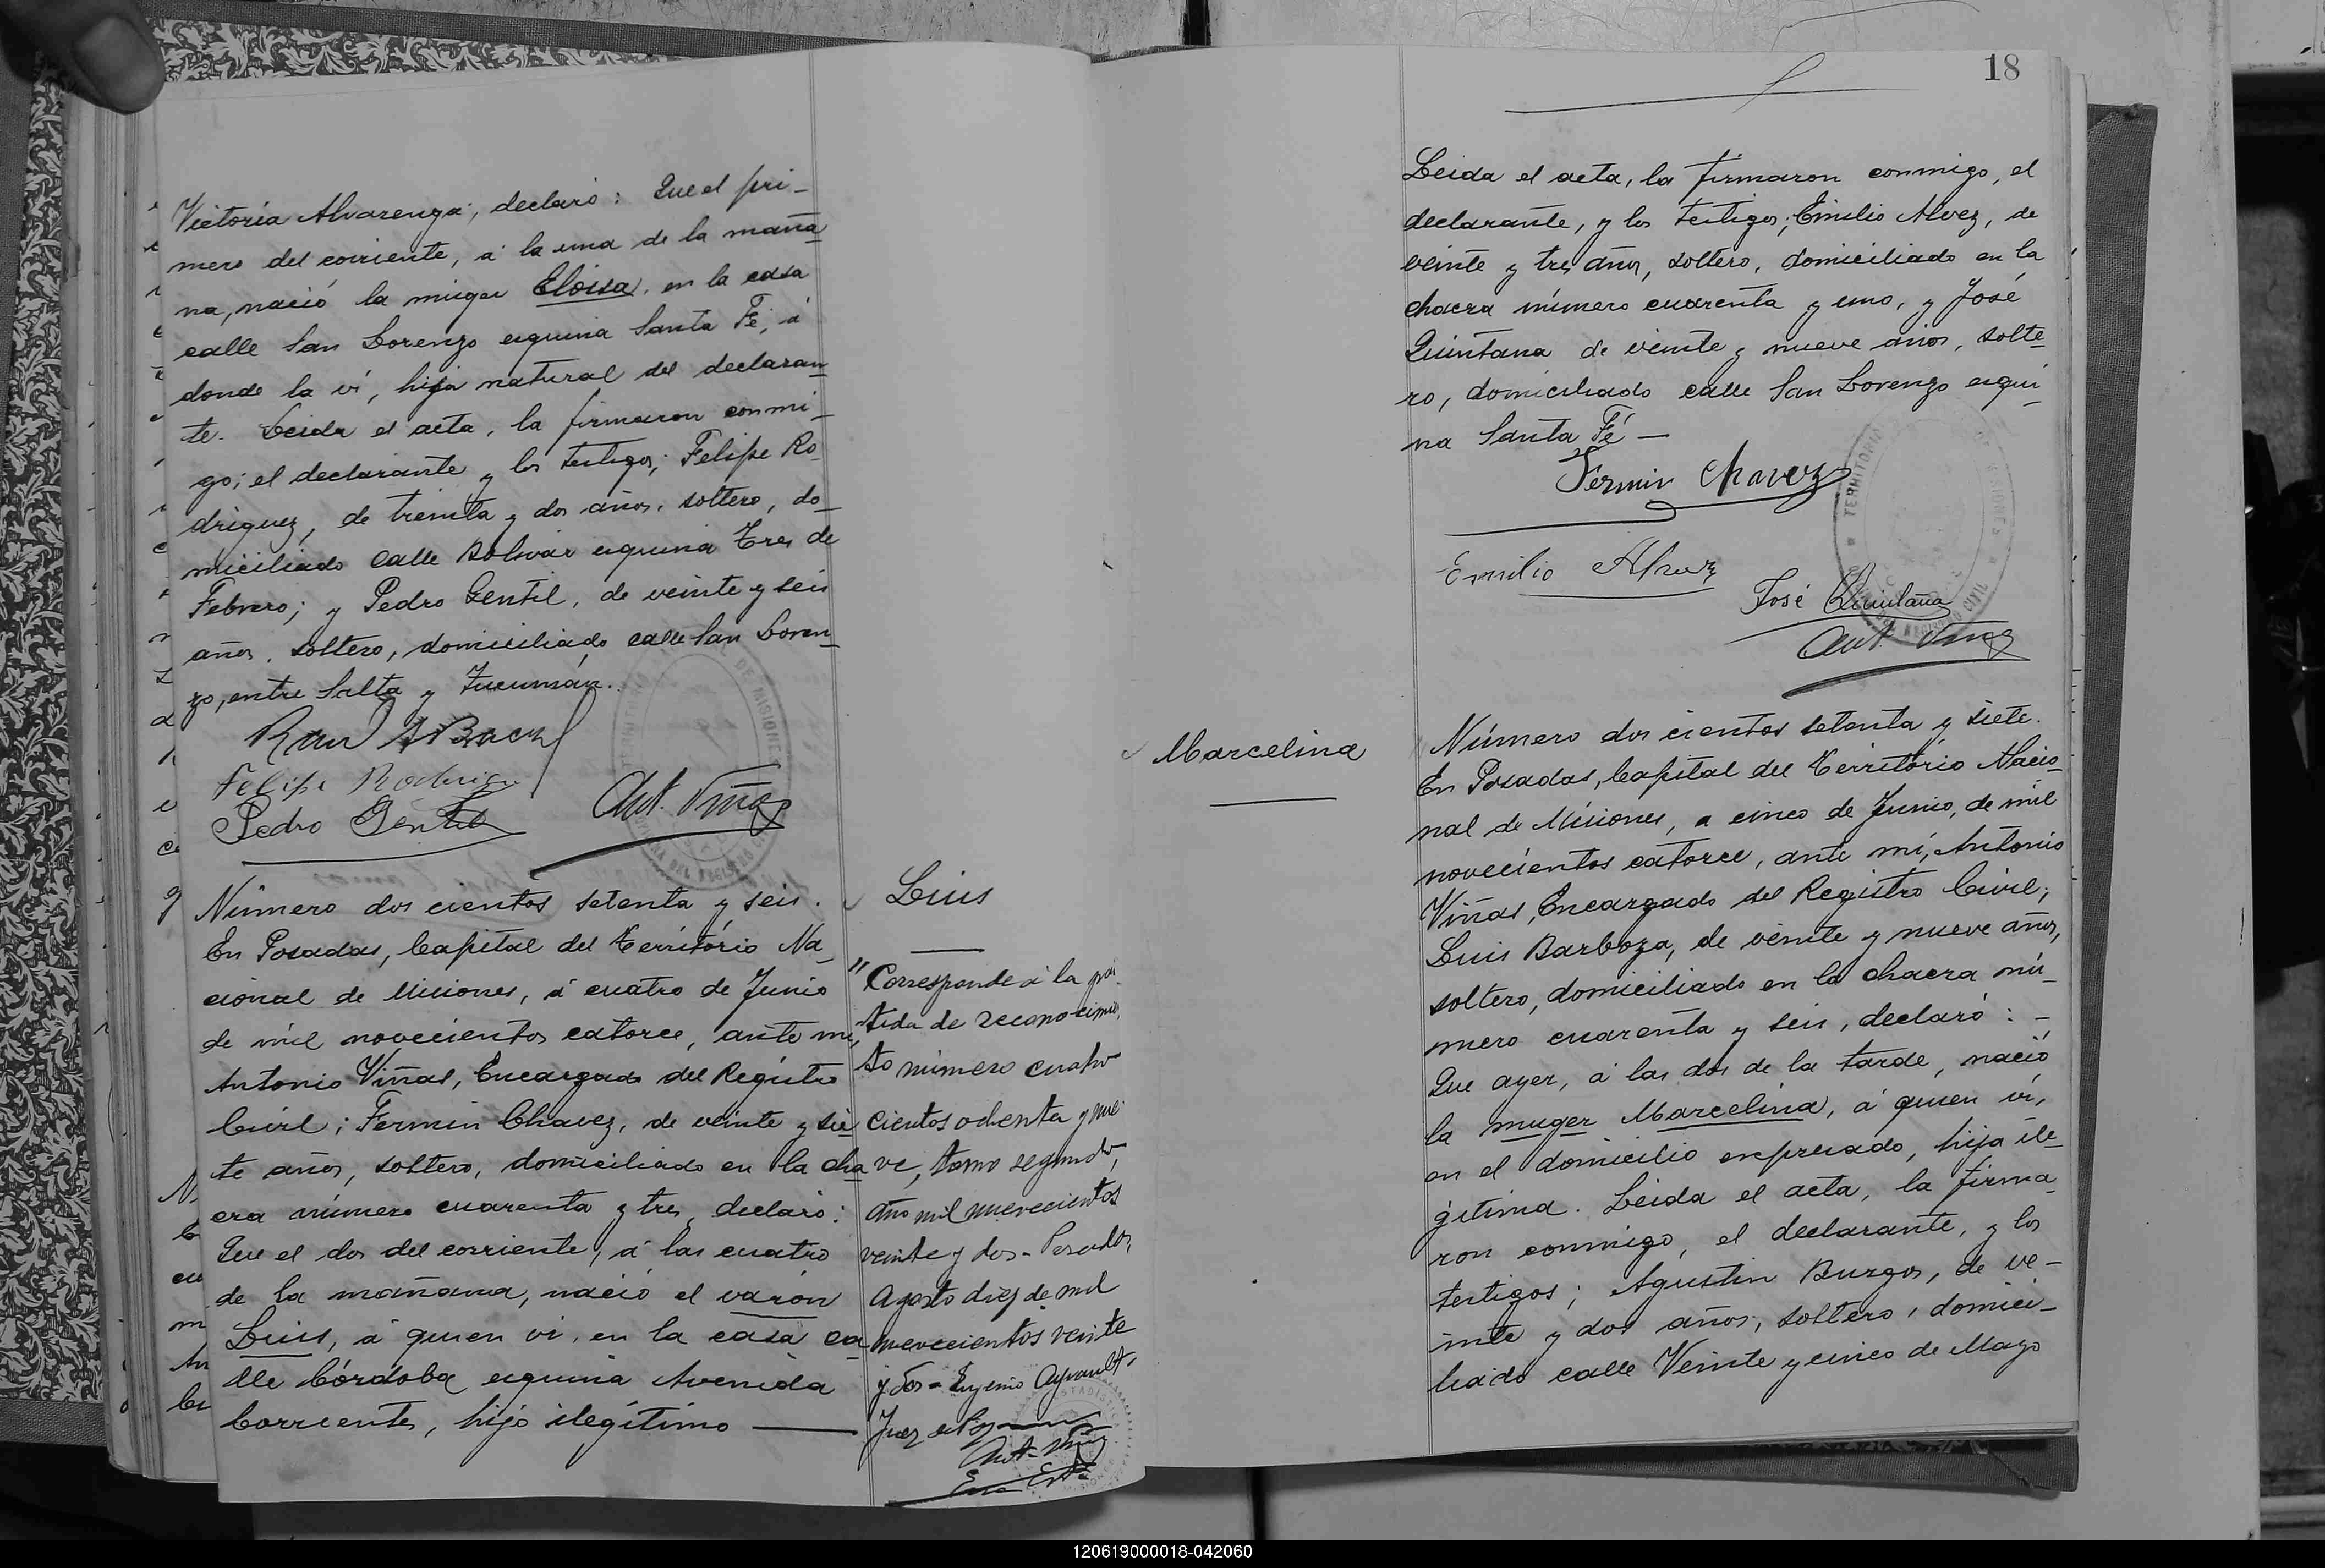 Victoria Alvarenga; declaró: Que el pri-
mero del corriente, á la una de la maña-
na, nació la muger Eloisa, en la casa
calle San Lorenzo esquina Santa Fé, á
donde la ví, hija natural del declaran-
te. Leida el acta, la firmaron conmi-
go; el declarante y los testigos; Felipe Ro-
driguez, de treinta y dos años, soltero, do-
miciliado calle Bolivar esquina Tres de
Febrero; y Pedro Gentil, de veinte y seis
años, soltero, domiciliado calle San Loren-
zo, entre Salta y Tucumán.
Felipe Rodrigu
Pedro Gentil
Ant. Viñas
Luis
Número dos cientos setenta y seis.
En Posadas, Capital del Território Na-
cional de Misiones, á cuatro de Junio
de mil novecientos catorce, ante mi,
Antonio Viñas, Encargado del Registro
Civil; Fermin Chavez, de veinte y sie-
te años, soltero, domiciliado en la cha-
cra número cuarenta y tres, declaró:
Que el dos del corriente, á las cuatro
de la mañana, nació el varón
Luis, á quien vi, en la casa ca-
lle Córdoba esquina Avenida
Corrientes, hijo ilegítimo
"Corresponde á la par
tida de reconocimien
to número cuatro
cientos ochenta y nue
ve, tomo segundo,
año mil nuevecientos
veinte y dos - Posadas,
Agosto diez de mil
nuevecientos veinte
y dos - Eugenio Ayrault,
Juez de Paz
Ant. Viñas
18
Leida el acta, la firmaron conmigo, el
declarante, y los testigos; Emilio Alvez, de
veinte y tres años, soltero, domiciliado en la
chacra número cuarenta y uno, y José
Quintana de veinte y nueve años, solte-
ro, domiciliado calle San Lorenzo esqui-
na Santa Fé —
Fermin Chavez
Emilio Alvez
José Quintana
Ant. Viñas
TERRITORIO DE MISIONES
REGISTRO CIVIL
Marcelina
Número dos cientos setenta y siete.
En Posadas, Capital del Território Nacio-
nal de Misiones, a cinco de Junio, de mil
novecientos catorce, ante mí, Antonio
Viñas, Encargado del Registro Civil;
Luis Barboza, de veinte y nueve años,
soltero, domiciliado en la chacra nú-
mero cuarenta y seis, declaró: -
Que ayer, á las dos de la tarde, nació
la muger Marcelina, á quien ví,
en el domicilio expresado, hija ile-
gítima. Leida el acta, la firma-
ron conmigo, el declarante, y los
testigos; Agustin Burgos, de ve-
inte y dos años, soltero, domici-
liado calle Veinte y cinco de Mayo
120619000018-042060